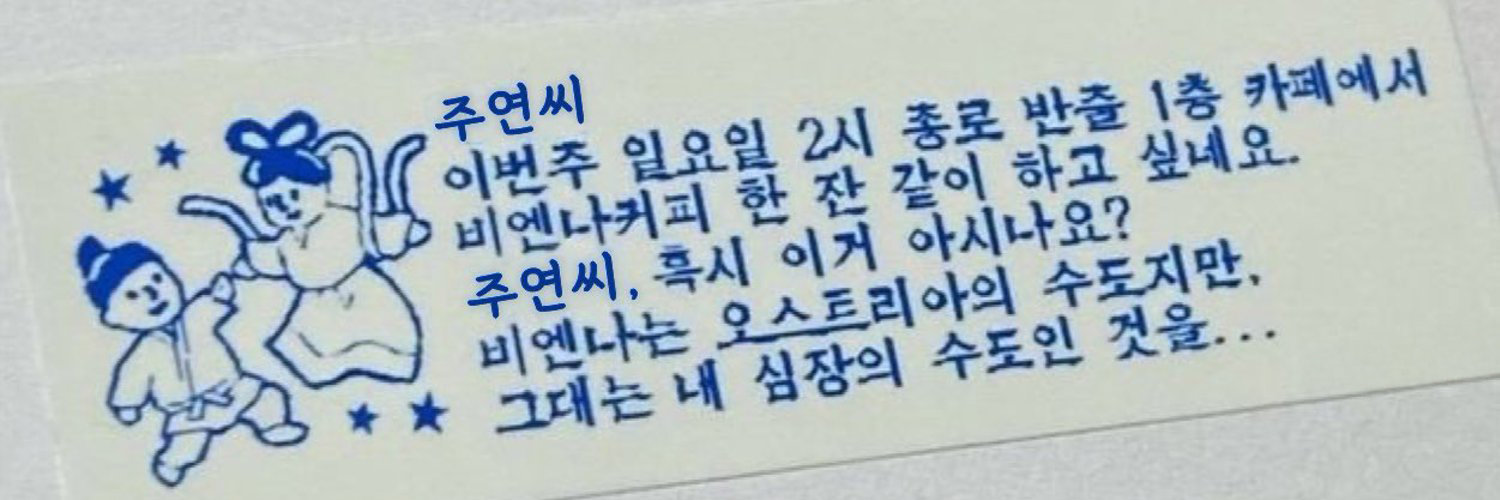 주연씨
이번주 일요일 2시 종로 반쥴 1층 카페에서
비엔나커피 한 잔 같이 하고 싶네요.
주연씨, 혹시 이거 아시나요?
비엔나는 오스트리아의 수도지만,
그대는 내 심장의 수도인 것을...